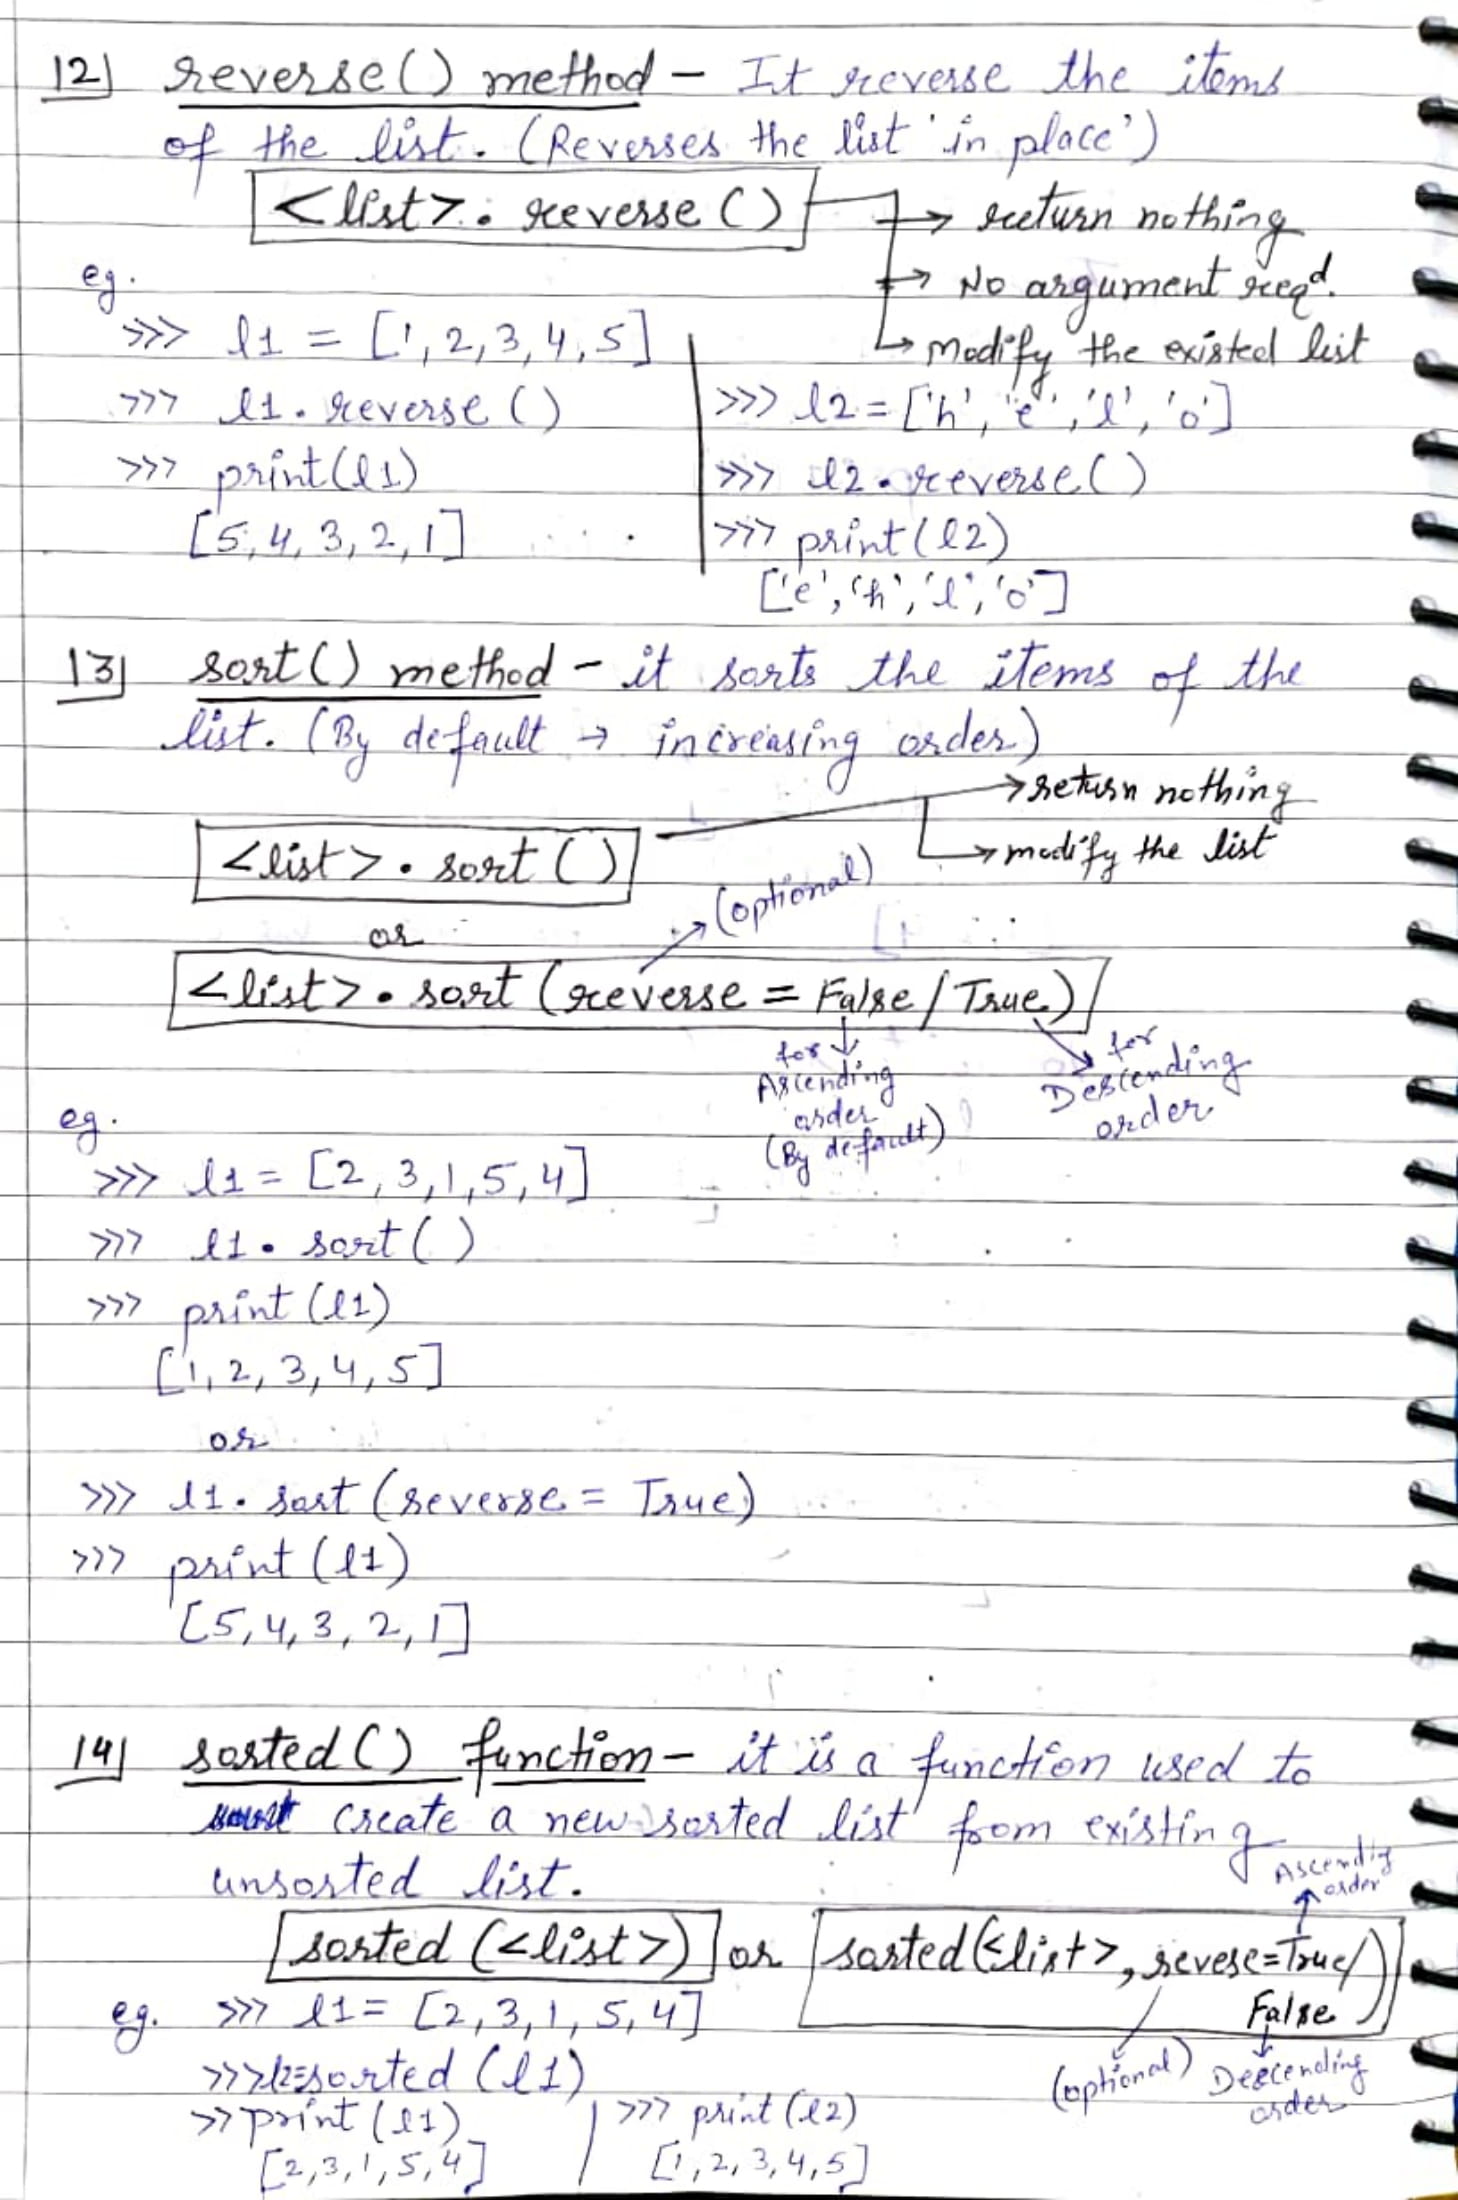 12] reverse() method - It reverse the items
of the list. (Reverses the list 'in place')
<list>. reverse ()
→ return nothing
→ No argument reqd.
→ modify the existed list
eg.
>>> l1 = [1, 2, 3, 4, 5]
>>> l1. reverse ()
>>> print(l1)
[5, 4, 3, 2, 1]
>>> l2 = ['h', 'e', 'l', 'o']
>>> l2. reverse()
>>> print (l2)
['e', 'h', 'l', 'o']
13] sort() method - it sorts the items of the
list. (By default → increasing order)
→ return nothing
→ modify the list
<list>. sort ()
(optional)
or
<list>. sort (reverse = False / True)
for
Ascending
order
(By default)
for
Descending
order
eg.
>>> l1 = [2, 3, 1, 5, 4]
>>> l1. sort ( )
>>> print (l1)
[1, 2, 3, 4, 5]
or
>>> l1. sort (reverse = True)
>>> print (l1)
[5, 4, 3, 2, 1]
14] sorted () function - it is a function used to
create a new sorted list from existing
unsorted list.
Ascendig
order
sorted (<list>) or sorted(<list>, revese=True/
False)
(optional)
Descending
order
eg. >>> l1 = [2, 3, 1, 5, 4]
>>> l2=sorted (l1)
>> print (l1)
[2, 3, 1, 5, 4]
>>> print (l2)
[1, 2, 3, 4, 5]